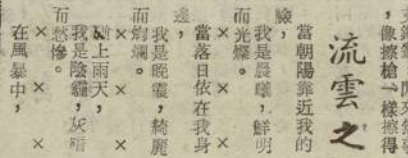 ，像擦槍一樣擦得
流雲之
當朝陽靠近我的
臉，
我是晨曦，鮮明
而光燦。
× × ×
當落日依在我身
邊，
我是晚霞，綺麗
而絢爛。
× × ×
上雨天，
我是陰霾，灰暗
而愁慘。
× × ×
在風暴中，